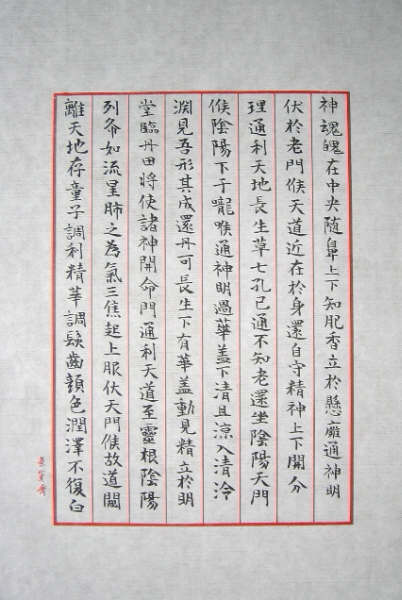 神魂魄在中央随鼻上下知肥香立於懸廱通神明
伏於老門候天道近在於身還自守精神上下開分
理通利天地長生草七孔已通不知老還坐陰陽天門
候陰陽下于嚨喉通神明過華盖下清且涼入清泠
淵見吾形其成還丹可長生下有華盖動見精立於明
堂臨丹田將使諸神開命門通利天道至靈根陰陽
列布如流星肺之為氣三焦起上服伏天門候故道闚
離天地存童子調利精華調髮齒顏色潤澤不復白